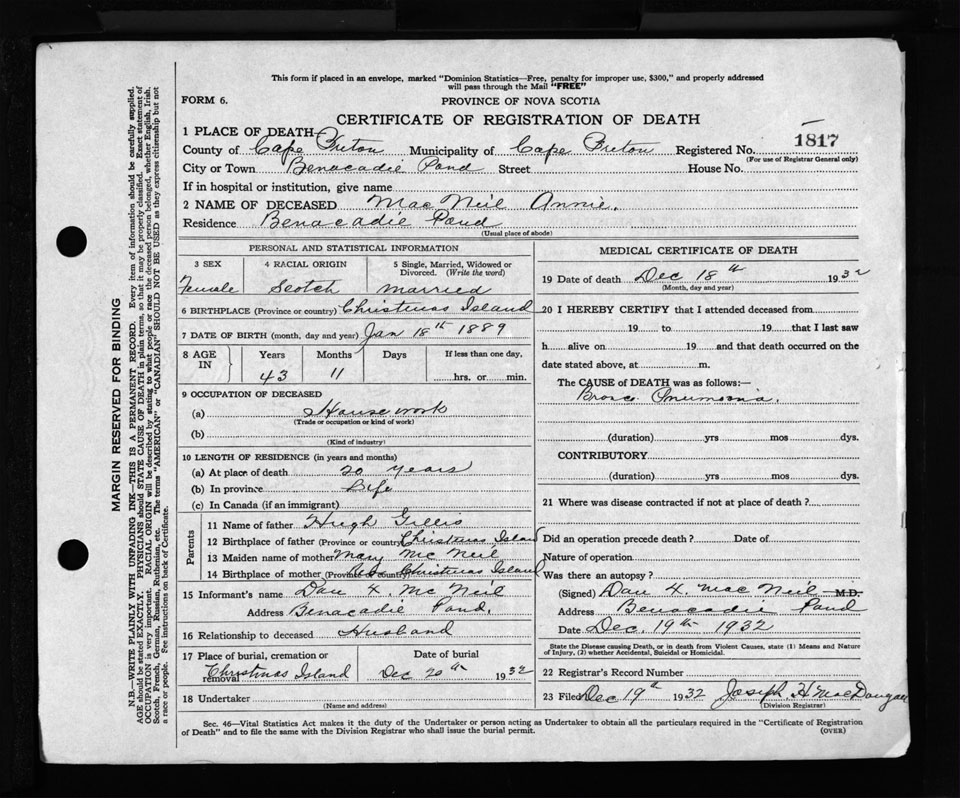 This form if placed in an envelope, marked "Dominion Statistics—Free, penalty for improper use, $300," and properly addressed
will pass through the Mail "FREE"
FORM 6.
PROVINCE OF NOVA SCOTIA
CERTIFICATE OF REGISTRATION OF DEATH
1 PLACE OF DEATH—
County of Cape Breton Municipality of Cape Breton Registered No. 1817
(For use of Registrar General only)
City or Town Benacadie Pond Street House No.
If in hospital or institution, give name
2 NAME OF DECEASED MacNeil Annie.
Residence Benacadie Pond
(Usual place of abode)
PERSONAL AND STATISTICAL INFORMATION
3 SEX 4 RACIAL ORIGIN 5 Single, Married, Widowed or
Divorced. (Write the word)
Female Scotch married
6 BIRTHPLACE (Province or country) Christmas Island
7 DATE OF BIRTH (month, day and year) Jan 18th 1889
8 AGE IN Years Months Days If less than one day,
43 11 hrs. or min.
9 OCCUPATION OF DECEASED
(a) House work
(Trade or occupation or kind of work)
(b)
(Kind of industry)
10 LENGTH OF RESIDENCE (in years and months)
(a) At place of death 20 years
(b) In province Life
(c) In Canada (if an immigrant)
Parents
11 Name of father Hugh Gillis
12 Birthplace of father (Province or country) Christmas Island
13 Maiden name of mother Mary McNeil
14 Birthplace of mother (Province or country) Christmas Island
15 Informant's name Dan X. McNeil
Address Benacadie Pond.
16 Relationship to deceased Husband
17 Place of burial, cremation or
removal Christmas Island
Date of burial
Dec 20th 1932
18 Undertaker
(Name and address)
MEDICAL CERTIFICATE OF DEATH
19 Date of death Dec 18th 1932
(Month, day and year)
20 I HEREBY CERTIFY that I attended deceased from
19 to 19 that I last saw
h alive on 19 and that death occurred on the
date stated above, at m.
The CAUSE OF DEATH was as follows:—
Bronco Pnumonia.
(duration) yrs mos dys.
CONTRIBUTORY
(duration) yrs mos dys.
21 Where was disease contracted if not at place of death?
Did an operation precede death? Date of
Nature of operation
Was there an autopsy?
(Signed) Dan X. MacNeil M.D.
Address Benacadie Pond
Date Dec. 19th 1932
State the Disease causing Death, or in death from Violent Causes, state (1) Means and Nature
of Injury, (2) whether Accidental, Suicidal or Homicidal.
22 Registrar's Record Number
23 Filed Dec 19th 1932 Joseph H MacDougall
(Division Registrar)
Sec. 46—Vital Statistics Act makes it the duty of the Undertaker or person acting as Undertaker to obtain all the particulars required in the "Certificate of Registration
of Death" and to file the same with the Division Registrar who shall issue the burial permit.
(OVER)
MARGIN RESERVED FOR BINDING
N.B.—WRITE PLAINLY WITH UNFADING INK—THIS IS A PERMANENT RECORD. Every item of information should be carefully supplied.
AGE should be stated EXACTLY. PHYSICIANS should STATE CAUSE OF DEATH in plain terms, so that it may be properly classified. Exact statement of
OCCUPATION is very important. RACIAL ORIGIN will be described by stating to what people or race the deceased person belonged, whether English, Irish,
Scotch, French, German, Russian, Ruthenian, etc. The terms "AMERICAN" or "CANADIAN" SHOULD NOT BE USED as they express citizenship but not
a race or people. See instructions on back of Certificate.